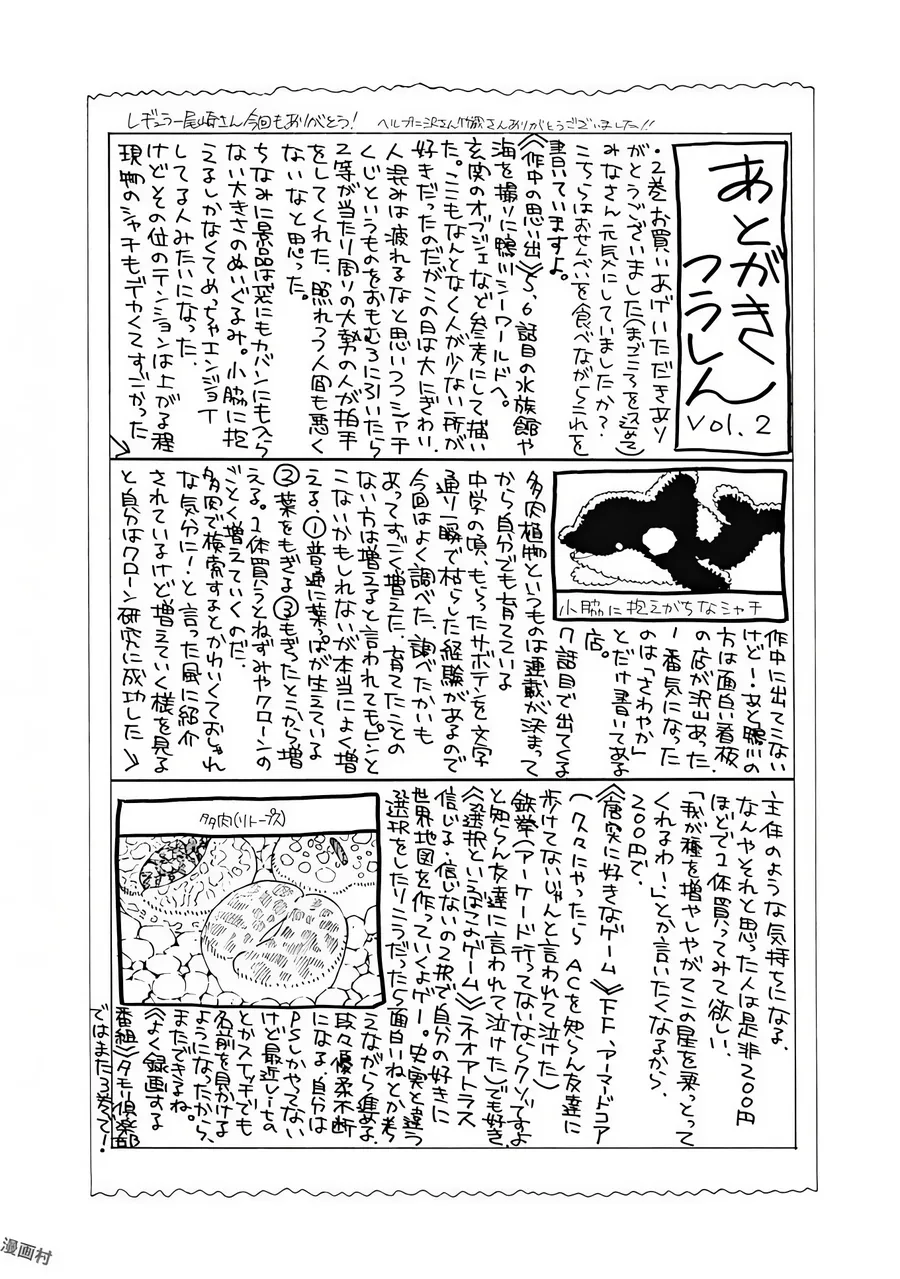 レギュラー尾崎さん今回もありがとう!
ヘルプ二沢さん竹蔵さんありがとうございました!!
あとがき
つうしん
vol.2
・2巻お買いあげいただきあり
がとうございました(まごころを込めて)
みなさん元気にしていましたか?
こちらはおせんべいを食べながらこれを
書いていますよ。
《作中の思い出》5,6話目の水族館や
海を撮りに鴨川シーワールドへ。
玄関のオブジェなど参考にして描い
た。ここもなんとなく人が少ない所が
好きだったのだがこの日は大にぎわい。
人混みは疲れるなと思いつつシャチ
くじというものをおもむろに引いたら
2等が当たり周りの大勢の人が拍手
をしてくれた。照れつつ人間も悪く
ないなと思った。
ちなみに景品は袋にもカバンにも入ら
ない大きさのぬいぐるみ。小脇に抱
えるしかなくてめっちゃエンジョイ
してる人みたいになった
けどその位のテンションは上がる程
現物のシャチもデカくてすごかった
小脇に抱えがちなシャチ
作中に出てこない
けど!あと鴨川の
方は面白い看板
の店が沢山あった。
1番気になった
のは「さわやか」
とだけ書いてある
店。
7話目で出てくる
多肉植物というものは連載が決まって
から自分でも育てている
中学の頃、もらったサボテンを文字
通り一瞬で枯らした経験があるので
今回はよく調べた、調べたかいも
あってすごく増えた。育てたことの
ない方は増えると言われてもピンと
こないかもしれないが本当によく増
える。①普通に葉っぱが生えている
②葉をもぎる③もぎったとこから増
える。1体買うとねずみやクローンの
ごとく増えていくのだ。
多肉で検索するとかわいくておしゃれ
な気分に!と言った風に紹介
されているけど増えていく様を見る
と自分はクローン研究に成功した
主任のような気持ちになる。
なんやそれと思った人は是非200円
ほどで1体買ってみて欲しい。
「我が種を増やしやがてこの星を乗っとって
くれるわー」とか言いたくなるから。
200円で。
《唐突に好きなゲーム》FF、アーマードコア
(久々にやったらACを知らん友達に
歩けてないじゃんと言われて泣けた)
鉄拳(アーケード行ってないならクソですよ
と知らん友達に言われて泣けた)でも好き。
《選択といえばこよゲーム》ネオアトラス
信じる・信じないの2択で自分の好きに
世界地図を作っていくよゲー。史実と違う
選択をしたりこうだったら面白いねとか考
えながら進める。
段々優柔不断
になる。自分は
PSしかやってない
けど最近レーセの
とかスイッチでも
名前を見かける
ようになったから、
またできるね。
《よく録画する
番組》タモリ倶楽部
ではまた3巻で!
多肉(リトープス)
漫画村